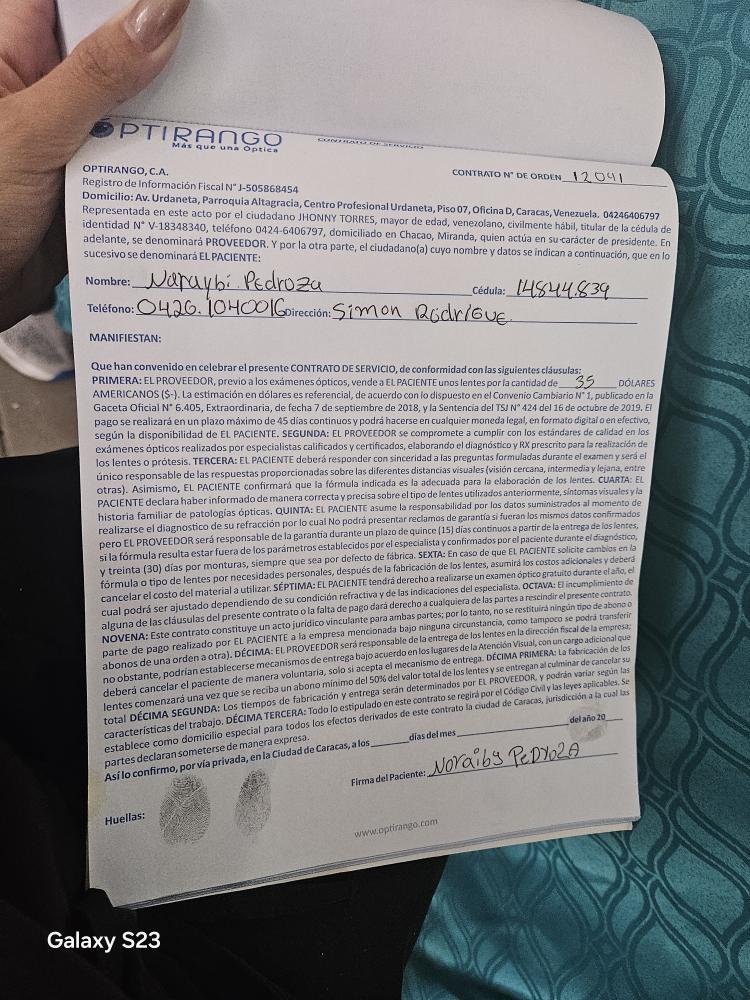 OPTIRANGO
Más que una Óptica
CONTRATO DE SERVICIO
OPTIRANGO, C.A.
CONTRATO N° DE ORDEN 12041
Registro de Información Fiscal N° J-505868454
Domicilio: Av. Urdaneta, Parroquia Altagracia, Centro Profesional Urdaneta, Piso 07, Oficina D, Caracas, Venezuela. 04246406797
Representada en este acto por el ciudadano JHONNY TORRES, mayor de edad, venezolano, civilmente hábil, titular de la cédula de
identidad N° V-18348340, teléfono 0424-6406797, domiciliado en Chacao, Miranda, quien actúa en su carácter de presidente. En
adelante, se denominará PROVEEDOR. Y por la otra parte, el ciudadano(a) cuyo nombre y datos se indican a continuación, que en lo
sucesivo se denominará EL PACIENTE:
Nombre: Noraybi Pedroza Cédula: 14844.839
Teléfono: 0426.1040016 Dirección: Simon Rodrigue.
MANIFIESTAN:
Que han convenido en celebrar el presente CONTRATO DE SERVICIO, de conformidad con las siguientes cláusulas:
PRIMERA: EL PROVEEDOR, previo a los exámenes ópticos, vende a EL PACIENTE unos lentes por la cantidad de 35 DÓLARES
AMERICANOS ($-). La estimación en dólares es referencial, de acuerdo con lo dispuesto en el Convenio Cambiario N° 1, publicado en la
Gaceta Oficial N° 6.405, Extraordinaria, de fecha 7 de septiembre de 2018, y la Sentencia del TSJ N° 424 del 16 de octubre de 2019. El
pago se realizará en un plazo máximo de 45 días continuos y podrá hacerse en cualquier moneda legal, en formato digital o en efectivo,
según la disponibilidad de EL PACIENTE. SEGUNDA: EL PROVEEDOR se compromete a cumplir con los estándares de calidad en los
exámenes ópticos realizados por especialistas calificados y certificados, elaborando el diagnóstico y RX prescrito para la realización de
los lentes o prótesis. TERCERA: EL PACIENTE deberá responder con sinceridad a las preguntas formuladas durante el examen y será el
único responsable de las respuestas proporcionadas sobre las diferentes distancias visuales (visión cercana, intermedia y lejana, entre
otras). Asimismo, EL PACIENTE confirmará que la fórmula indicada es la adecuada para la elaboración de los lentes. CUARTA: EL
PACIENTE declara haber informado de manera correcta y precisa sobre el tipo de lentes utilizados anteriormente, síntomas visuales y la
historia familiar de patologías ópticas. QUINTA: EL PACIENTE asume la responsabilidad por los datos suministrados al momento de
realizarse el diagnostico de su refracción por lo cual No podrá presentar reclamos de garantía si fueran los mismos datos confirmados
pero EL PROVEEDOR será responsable de la garantía durante un plazo de quince (15) días continuos a partir de la entrega de los lentes,
si la fórmula resulta estar fuera de los parámetros establecidos por el especialista y confirmados por el paciente durante el diagnóstico,
y treinta (30) días por monturas, siempre que sea por defecto de fábrica. SEXTA: En caso de que EL PACIENTE solicite cambios en la
fórmula o tipo de lentes por necesidades personales, después de la fabricación de los lentes, asumirá los costos adicionales y deberá
cancelar el costo del material a utilizar. SÉPTIMA: EL PACIENTE tendrá derecho a realizarse un examen óptico gratuito durante el año, el
cual podrá ser ajustado dependiendo de su condición refractiva y de las indicaciones del especialista. OCTAVA: El incumplimiento de
alguna de las cláusulas del presente contrato o la falta de pago dará derecho a cualquiera de las partes a rescindir el presente contrato.
NOVENA: Este contrato constituye un acto jurídico vinculante para ambas partes; por lo tanto, no se restituirá ningún tipo de abono o
parte de pago realizado por EL PACIENTE a la empresa mencionada bajo ninguna circunstancia, como tampoco se podrá transferir
abonos de una orden a otra). DÉCIMA: EL PROVEEDOR será responsable de la entrega de los lentes en la dirección fiscal de la empresa;
no obstante, podrían establecerse mecanismos de entrega bajo acuerdo en los lugares de la Atención Visual, con un cargo adicional que
deberá cancelar el paciente de manera voluntaria, solo si acepta el mecanismo de entrega. DÉCIMA PRIMERA: La fabricación de los
lentes comenzará una vez que se reciba un abono mínimo del 50% del valor total de los lentes y se entregan al culminar de cancelar su
total DÉCIMA SEGUNDA: Los tiempos de fabricación y entrega serán determinados por EL PROVEEDOR, y podrán variar según las
características del trabajo. DÉCIMA TERCERA: Todo lo estipulado en este contrato se regirá por el Código Civil y las leyes aplicables. Se
establece como domicilio especial para todos los efectos derivados de este contrato la ciudad de Caracas, jurisdicción a la cual las
partes declaran someterse de manera expresa.
Así lo confirmo, por vía privada, en la Ciudad de Caracas, a los ______ días del mes ______ del año 20__
Firma del Paciente: Noraiby PeDroza
Huellas:
www.optirango.com
Galaxy S23